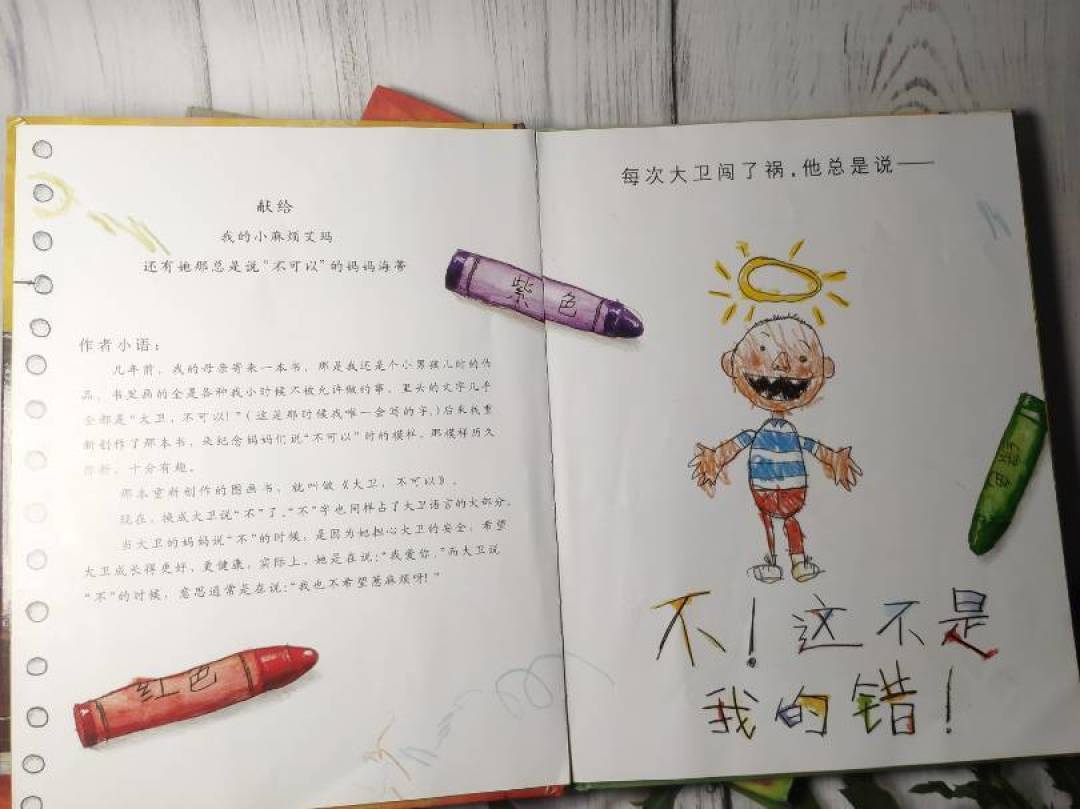 献给
我的小麻烦艾玛
还有她那总是说“不可以”的妈妈海蒂
作者小语：
几年前，我的母亲寄来一本书，那是我还是个小男孩儿时的作
品，书里画的全是各种我小时候不被允许做的事，里头的文字几乎
全都是“大卫，不可以！”（这是那时候我唯一会写的字。）后来我重
新创作了那本书，来纪念妈妈们说“不可以”时的模样，那模样历久
弥新，十分有趣。
那本重新创作的图画书，就叫做《大卫，不可以》。
现在，换成大卫说“不”了。“不”字也同样占了大卫语言的大部分。
当大卫的妈妈说“不”的时候，是因为她担心大卫的安全，希望
大卫成长得更好，更健康，实际上，她是在说：“我爱你。”而大卫说
“不”的时候，意思通常是在说：“我也不希望惹麻烦呀！”
紫色
红色
每次大卫闯了祸，他总是说——
绿色
不！这不是
我的错！